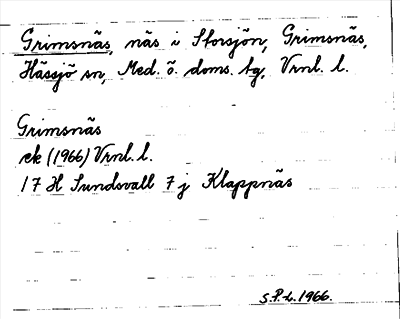 Grimsnäs, näs i Storsjön, Grimsnäs,
Hässjö sn, Med. ö. doms. tg, Vrnl. l.
Grimsnäs
ek (1966) Vrnl. l.
17 H Sundsvall 7 j Klappnäs
S.P.L. 1966.